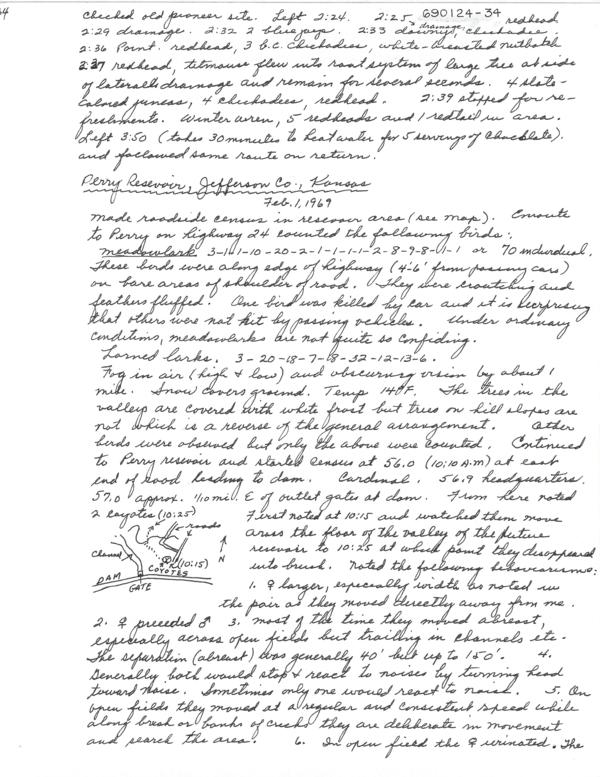 checked old pioneer site. Left 2:24. 2:25 redhead
690124-34
2:29 drainage. 2:32 2 bluejays. 2:33 downy, chickadee.
drainage
2:36 Point. redhead, 3 b.c. chickadees, white-breasted nuthatch
2:37 redhead, titmouse flew into root system of large tree at side
of lateral drainage and remain for several seconds. 4 slate-
colored juncos, 4 chickadees, redhead. 2:39 stopped for re-
freshments. Winter wren, 5 redheads and 1 redtail in area.
Left 3:50 (takes 30 minutes to heat water for 5 servings of chocolate).
and followed same route on return.
Perry Resevoir, Jefferson Co., Kansas
Feb. 1, 1969
made roadside census in resevoir area (see map). Enroute
to Perry on highway 24 counted the following birds:
meadowlark 3-1-1-10-20-2-1-1-1-1-2-8-9-8-1-1 or 70 individual.
These birds were along edge of highway (4-6' from passing cars)
on bare areas of shoulder of road. They were crouching and
feathers fluffed. One bird was killed by car and it is surprising
that others were not hit by passing vehicles. Under ordinary
conditions, meadowlarks are not quite so confiding.
Horned larks. 3-20-18-7-8-32-12-13-6.
Fog in air (high & low) and obscuring vision by about 1
mile. Snow covers ground. Temp 14°F. The trees in the
valleys are covered with white frost but trees on hill slopes are
not which is a reverse of the general arrangement. Other
birds were observed but only the above were counted. Continued
to Perry resevoir and started census at 56.0 (10:10 A.M) at east
end of road leading to dam. Cardinal. 56.9 headquarters.
57.0 approx. 1/10 mi. E of outlet gates at dam. From here noted
2 coyotes (10:25)
roads
Channel
(10:15)
COYOTES
N
DAM
GATE
First noted at 10:15 and watched them move
across the floor of the valley of the future
resevoir to 10:25 at which point they disappeared
into brush. Noted the following behaviorisms:
1. ♀ larger, especially width as noted in
the pair as they moved directly away from me.
2. ♀ preceded ♂ 3. most of the time they moved abreast,
especially across open fields but trailing in channels etc.
The separation (abreast) was generally 40' but up to 150'. 4.
Generally both would stop & react to noises by turning head
toward noise. Sometimes only one would react to noise. 5. On
open fields they moved at a regular and consistent speed while
along brush or banks of creeks they are deliberate in movement
and search the area. 6. In open field the ♀ urinated. The